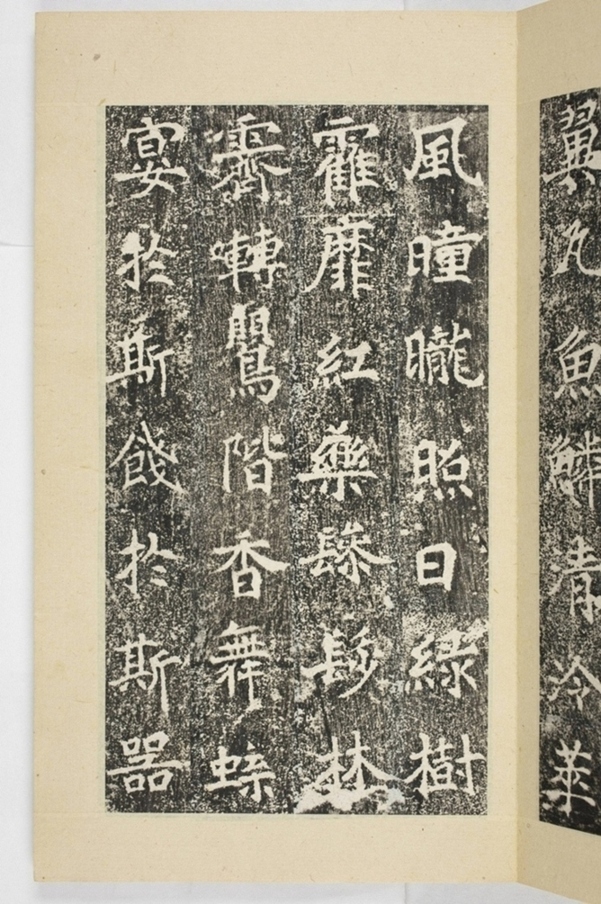 翼瓦魚鱗清泠萃
風曈曨照日綠樹
靃靡紅藥鬖髿林
霽囀鸎階香舞蝶
宴於斯餞於斯器